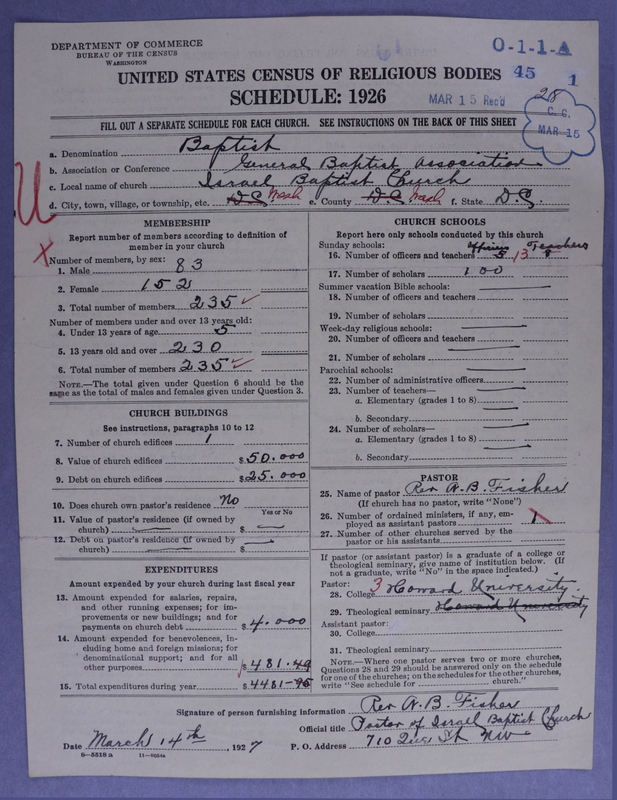 DEPARTMENT OF COMMERCE
BUREAU OF THE CENSUS
WASHINGTON
O-1-1-A
UNITED STATES CENSUS OF RELIGIOUS BODIES 45 1
SCHEDULE: 1926
MAR 15 Rec'd
28
C. C.
MAR 15
FILL OUT A SEPARATE SCHEDULE FOR EACH CHURCH. SEE INSTRUCTIONS ON THE BACK OF THIS SHEET
a. Denomination Baptist
b. Association or Conference General Baptist Association
c. Local name of church Israel Baptist Church
d. City, town, village, or township, etc. D.C. Wash e. County D.C. Wash f. State D.C.
U
MEMBERSHIP
Report number of members according to definition of
member in your church
X
Number of members, by sex:
1. Male 83
2. Female 152
3. Total number of members 235 ✓
Number of members under and over 13 years old:
4. Under 13 years of age 5
5. 13 years old and over 230
6. Total number of members 235 ✓
NOTE.—The total given under Question 6 should be the
same as the total of males and females given under Question 3.
CHURCH BUILDINGS
See instructions, paragraphs 10 to 12
7. Number of church edifices 1
8. Value of church edifices $50.000
9. Debt on church edifices $25.000
10. Does church own pastor's residence No
Yes or No
11. Value of pastor's residence (if owned by
church) $
12. Debt on pastor's residence (if owned by
church) $
EXPENDITURES
Amount expended by your church during last fiscal year
13. Amount expended for salaries, repairs,
and other running expenses; for im-
provements or new buildings; and for
payments on church debt $4.000
14. Amount expended for benevolences, in-
cluding home and foreign missions; for
denominational support; and for all
other purposes $481.49
15. Total expenditures during year $4481-
CHURCH SCHOOLS
Report here only schools conducted by this church
Sunday schools: Teachers
16. Number of officers and teachers 5 13 8
17. Number of scholars 100
Summer vacation Bible schools:
18. Number of officers and teachers
19. Number of scholars
Week-day religious schools:
20. Number of officers and teachers
21. Number of scholars
Parochial schools:
22. Number of administrative officers
23. Number of teachers—
a. Elementary (grades 1 to 8)
b. Secondary
24. Number of scholars—
a. Elementary (grades 1 to 8)
b. Secondary
PASTOR
25. Name of pastor Rev A. B. Fisher
(If church has no pastor, write "None")
26. Number of ordained ministers, if any, em-
ployed as assistant pastors 1
27. Number of other churches served by the
pastor or his assistants
If pastor (or assistant pastor) is a graduate of a college or
theological seminary, give name of institution below. (If
not a graduate, write "No" in the space indicated.)
Pastor:
28. College 3 Howard University
29. Theological seminary Howard University
Assistant pastor:
30. College
31. Theological seminary
NOTE.—Where one pastor serves two or more churches,
Questions 28 and 29 should be answered only on the schedule
for one of the churches; on the schedules for the other churches,
write "See schedule for church."
Signature of person furnishing information Rev A. B. Fisher
Official title Pastor of Israel Baptist Church
Date March 14th, 1927 P. O. Address 710 Que St NW
8-5518a 11-9054a